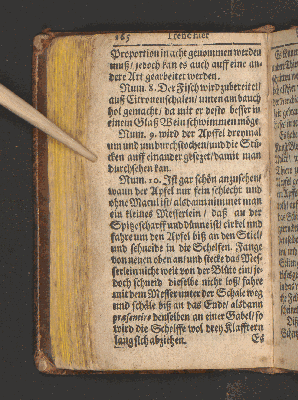 165 Trenchier
Proportion in acht genommen werden
muß/ jedoch kan es auch auff eine an-
dere Art gearbeitet werden.
Num. 8. Der Fisch wird zubereitet
auß Citronenschalen/ unten am bauch
hol gemacht/ damit er desto besser in
einem Glaß Wein schwimmen möge.
Num. 9. wird der Apffel dreymal
um und um durchstochen/ und die Stü-
cken auff einander gesetzet/ damit man
durchsehen kan.
Num. 10. Ist gar schön anzusehen/
wann der Apffel nur fein schlecht und
ohne Macul ist/ alsdann nimmet man
ein kleines Messerlein/ daß an der
Spitze scharff und dünne ist/ cirkel und
fahre um den Apffel biß an den Stiel/
und schneide in die Schelfen. Fange
von neuen oben an/ und stecke das Mes-
serlein nicht weit von der Blüte ein/ je-
doch schneid dieselbe nicht loß/ fahre
mit dem Messer unter der Schale weg
und schäle biß an das Ende/ alsdann
præsentire denselben an einer Gabel/ so
wird die Schelffe wol drey Klafftern
lang sich abziehen.
Es